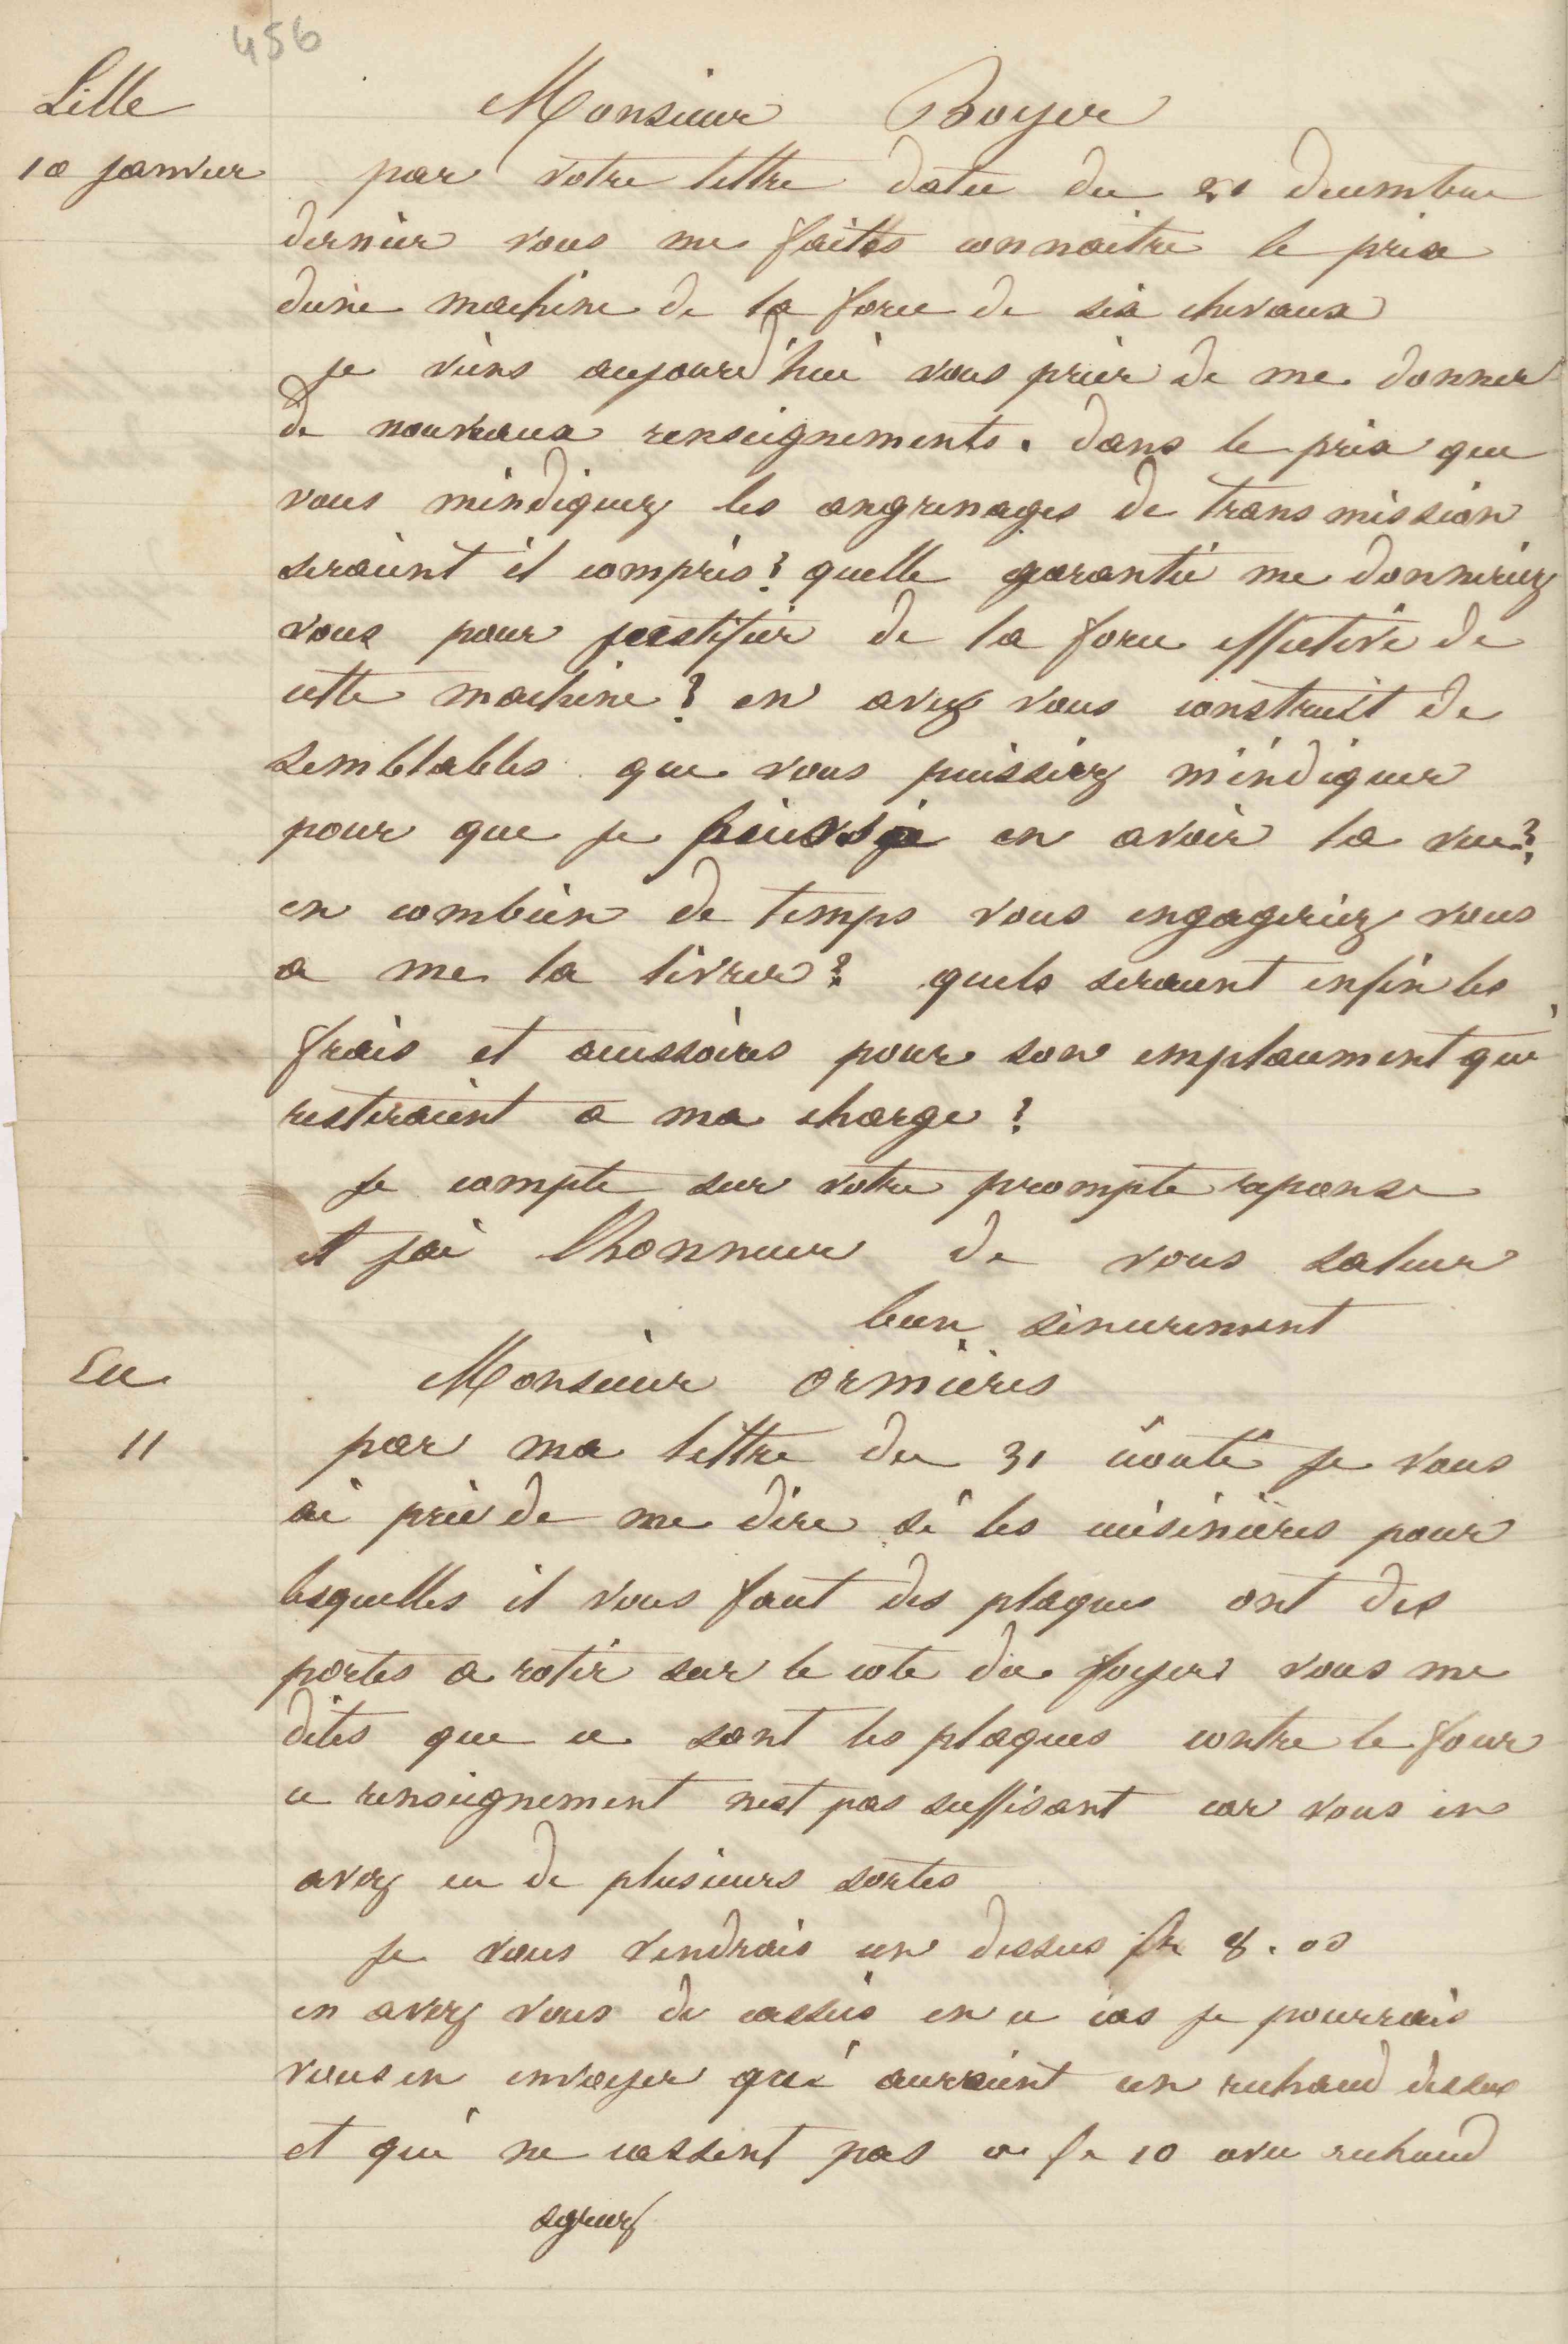 456
Lille
Monsieur Boyer
10 janvier
par votre lettre datee du 21 decembre
dernier vous me faites connaitre le prix
dune machine de la force de six chevaux
je viens aujourd'hui vous prier de me donner
de nouveaux renseignements. dans le prix que
vous mindiquez les angrenages de transmission
seraient il compris? quelle garantie me donneriez
vous pour justifier de la force effective de
cette machine? en avez vous construit de
semblables que vous puissiez m'indiquer
pour que je puisse en avoir la vue?
en combien de temps vous engageriez vous
a me la livrer? quels seraient enfin les
frais et accessoires pour son emplacement qui
resteraient a ma charge?
je compte sur votre prompte reponse
et jai lhonneur de vous saluer
bien sincerement
Eu
Monsieur ormieres
11
par ma lettre du 31 ecoulé je vous
ai prié de me dire si les cuisinieres pour
lesquelles il vous faut des plaques ont des
portes a rotir sur le coté du foyer vous me
dites que ce sont les plaques contre le four
ce renseignement nest pas suffisant car vous en
avez eu de plusieurs sortes
je vous vendrais un dessus fr 8.00
en avez vous de cassés en ce cas je pourrais
vous en envoyer qui auraient un rechaud dessus
et qui ne cassent pas a fr 10 avec rechaud